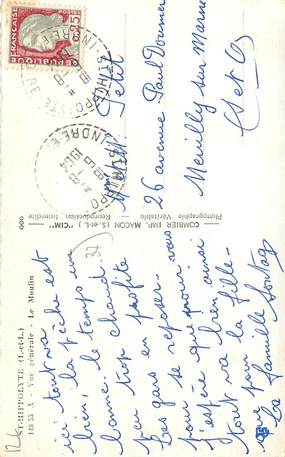 ST-HIPPOLYTE (I.-et-L.)
14835 A - Vue générale - Le Moulin
ici tout va
bien, la pêche est
bonne, le temps un
peu trop chaud
Les gars en profite
pour se reposer
j'espère que vous
tout va bien ainsi
que la fille.
La famille Sontag
37
COMBIER IMP. MACON (S.-et-L.) "CIM"
Photographie Véritable - Reproduction Interdite
000
Mme Petit
26 avenue Paul Doumer
Neuilly sur Marne
S et O
REPUBLIQUE FRANÇAISE
0,25
POSTES
ST HIPPOLYTE
INDRE ET